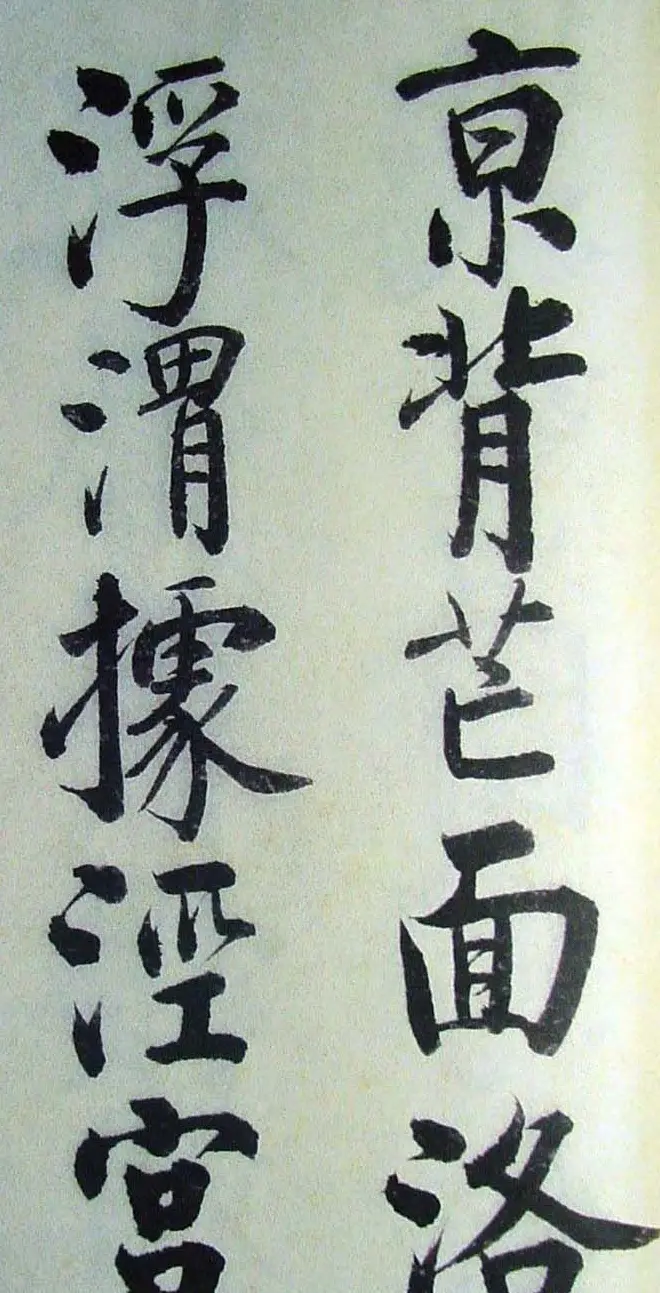 亰背芒面洛
浮渭據涇宮